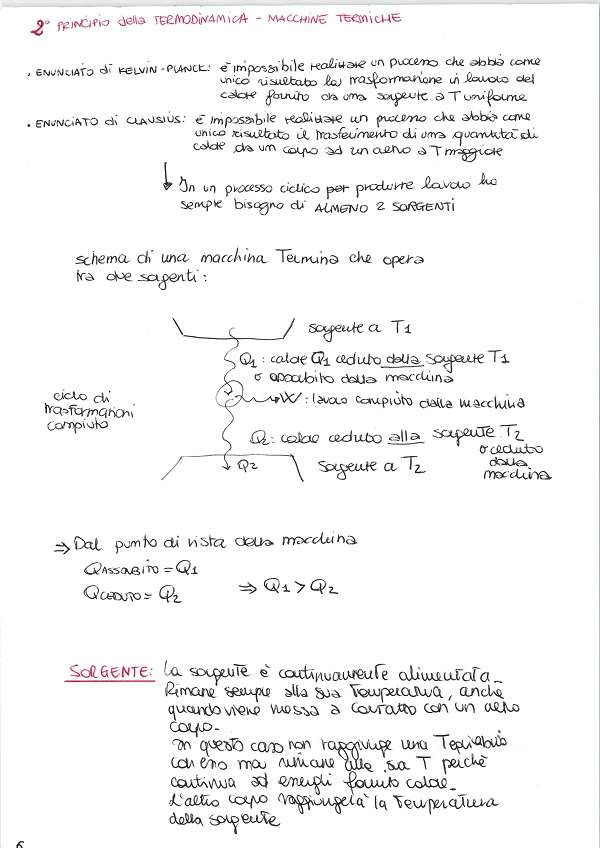 2° PRINCIPIO della TERMODINAMICA - MACCHINE TERMICHE
• ENUNCIATO di KELVIN-PLANCK: è impossibile realizzare un processo che abbia come
unico risultato la trasformazione in lavoro del
calore fornito da una sorgente a T uniforme
• ENUNCIATO di CLAUSIUS: è impossibile realizzare un processo che abbia come
unico risultato il trasferimento di una quantità di
calore da un corpo ad un altro a T maggiore
↓ In un processo ciclico per produrre lavoro ho
sempre bisogno di ALMENO 2 SORGENTI
schema di una macchina Termina che opera
tra due sorgenti:
sorgente a T1
Q1: calore Q1 ceduto dalla sorgente T1
o assorbito dalla macchina
W: lavoro compiuto dalla macchina
ciclo di
trasformazioni
compiuto
Q2: calore ceduto alla sorgente T2
o ceduto
dalla
macchina
Q2
sorgente a T2
⇒ Dal punto di vista della macchina
QASSORBITO = Q1
QCEDUTO = Q2 ⇒ Q1 > Q2
SORGENTE: La sorgente è continuamente alimentata.
Rimane sempre alla sua Temperatura, anche
quando viene messa a contatto con un altro
corpo.
In questo caso non raggiunge una Tequilibrio
con esso ma rimane alla sua T perchè
continua ad essergli fornito calore.
L'altro corpo raggiungerà la Temperatura
della sorgente